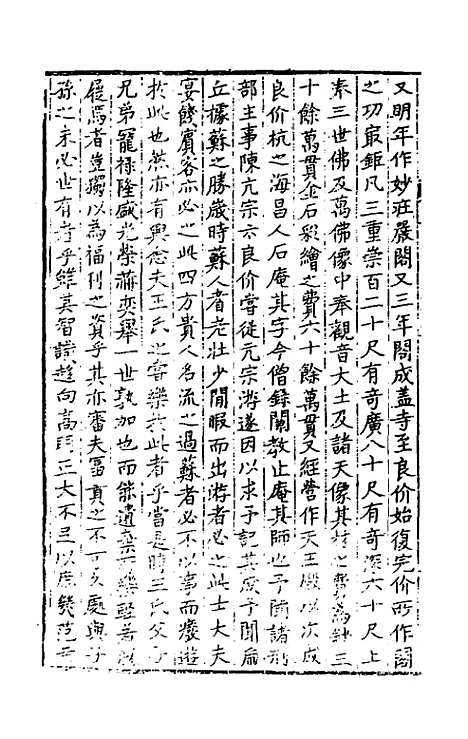 又明年作妙莊嚴閣又三年閣成蓋寺至良价始復完价所作閣
之功最鉅凡三重崇百二十尺有奇廣八十尺有奇深六十尺上
奉三世佛及萬佛像中奉觀音大士及諸天像其材之費為鈔三
十餘萬貫金石彩繪之費六十餘萬貫又經營作天王殿以次成
良价杭之海昌人石庵其字今僧錄闡教止庵其師也予聞諸刑
部主事陳亢宗云良价嘗從亢宗游遂因以求予記其成予聞虎
丘據蘇之勝歲時蘇人耆老壯少閒暇而出游者必之此士大夫
宴餞賓客亦必之此四方貴人名流之過蘇者必不以事而廢遊
於此也然亦有興念夫王氏之嘗樂於此者乎當是時王氏父子
兄弟寵祿隆盛光榮赫奕舉一世孰加也而能遺棄所樂
屣焉者豈獨以為福利之資乎其亦審夫富貴之不可久處與子
孫之未必世有者乎雖其智識趨向高明正大不足以庶幾范